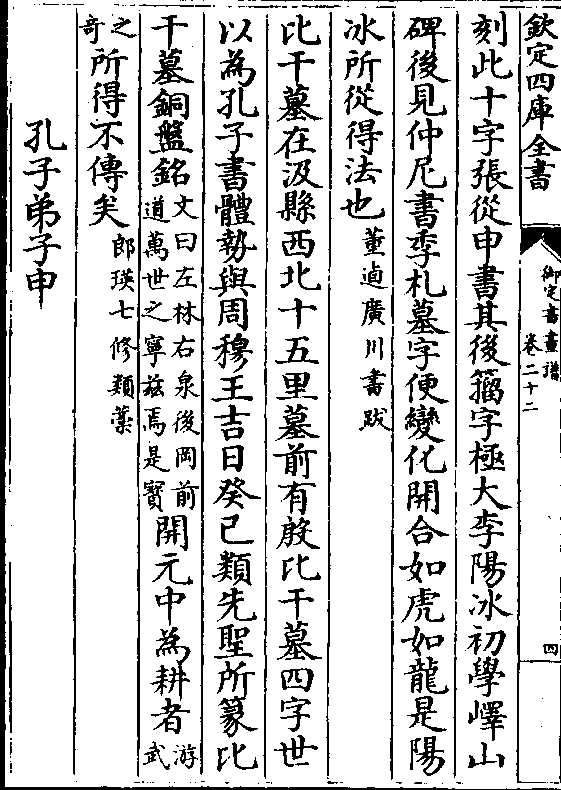 欽定四庫全書
御定書畫譜
卷二十二
四
刻此十字張從申書其後籀字極大李陽冰初學嶧山
碑後見仲尼書季札墓字便變化開合如虎如龍是陽
冰所從得法也董逌廣川書跋
比干墓在汲縣西北十五里墓前有殷比干墓四字世
以為孔子書體勢與周穆王吉日癸巳類先聖所篆比
干墓銅盤銘文曰左林右泉後岡前道萬世之寧兹焉是寳開元中為耕者游武
之奇所得不傳矣郎瑛七修類藳
孔子弟子申